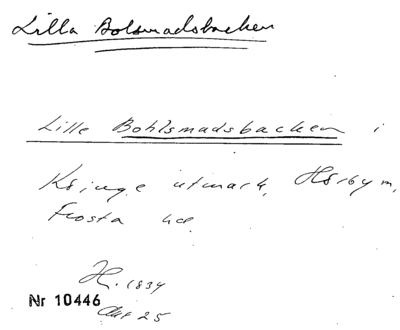 Lilla Bolsmadsbacken
Lille Bohlsmadsbacken i
Ksinge utmark, Hörby m,
Frosta hd
H. 1834
Nr 10446
Akt 25